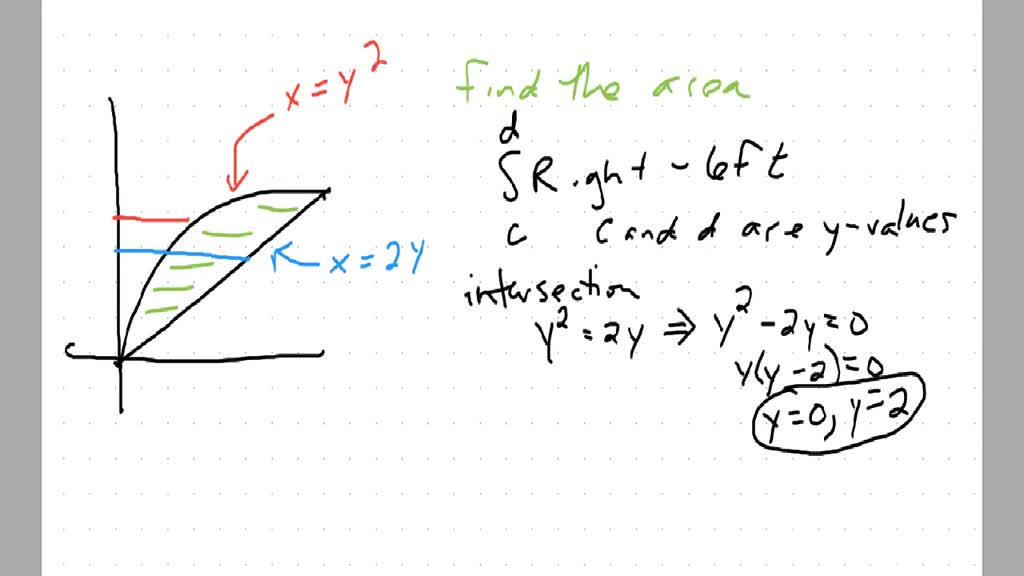 x = y²
find the area
d
∫ Right - left
c    c and d are y-values
x = 2y
intersection
y² = 2y ⇒ y² - 2y = 0
y(y - 2) = 0
y = 0, y = 2